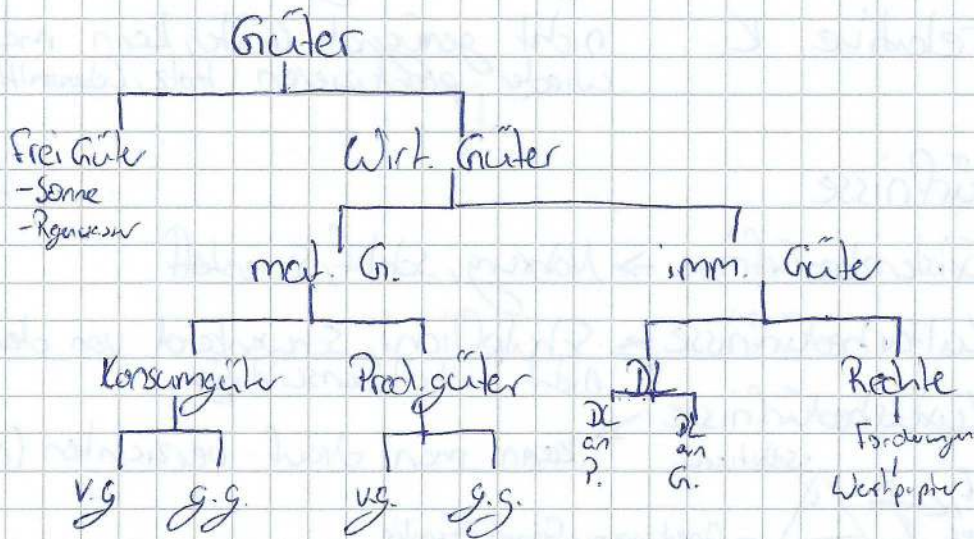 Güter
Frei Güter
- Sonne
Wirt. Güter
mat. G.
imm. Güter
Konsumgüter
Prod.güter
DL
Rechte
V.G
G.G.
V.G.
G.G.
DL an P.
DL an G.
Forderungen
Wertpapier